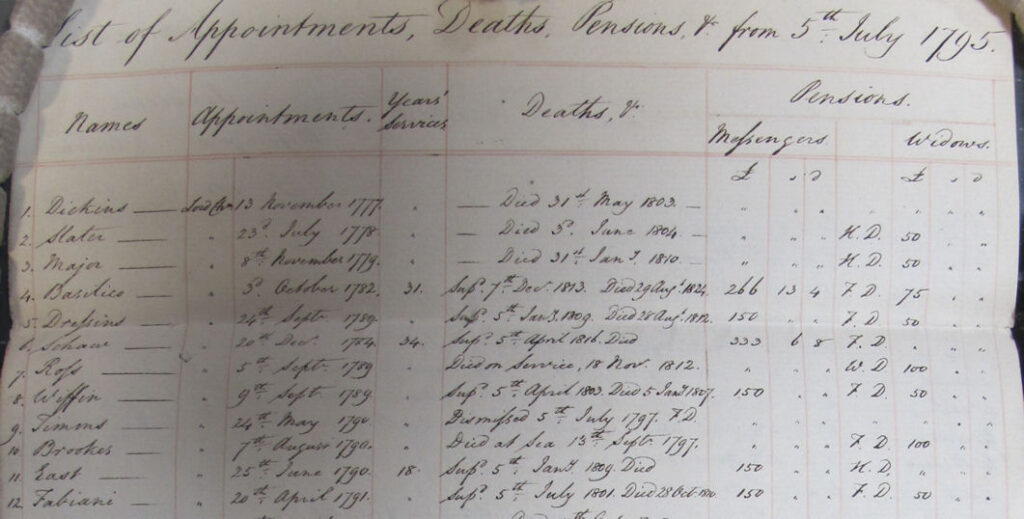 List of Appointments, Deaths, Pensions, &. from 5th. July 1795.
Names Appointments. Years' Services Deaths, &. Pensions.
Messengers Widows.
£ s d £ s d
1. Dickins — Lord Cha 13 November 1777. " — Died 31st May 1803. — " " " " " "
2. Slater — " 23d. July 1778 " — Died 3d. June 1804. — " " " H. D. 50 " "
3. Major — " 8th. November 1779. " — Died 31st Jany. 1810. — " " " H. D. 50 " "
4. Basilico — " 3d. October 1782. 31. Supd. 7th. Decr. 1813. Died 29 Augt. 1824. 266 13 4 F. D. 75 " "
5. Dressins — " 24th Septr. 1789. " Supd. 5th. Jany. 1809. Died 28 Augt. 1812. 150 " " F. D. 50 " "
6. Schaw — " 20th Decr. 1784. 34. Supd. 5th April 1816. Died 333 6 8 F. D. " " "
7. Ross — " 5th Septr. 1789 " Died on Service, 18 Novr. 1812. " " " W. D 100 " "
8. Wiffin — " 9th Septr. 1789. " Supd. 5th. April 1803. Died 5 Jany. 1807. 150 " " F. D 50 " "
9. Timms — " 24th May 1790. " Dismissed 5th July 1797. F.D. " " " " " "
10 Brookes — " 7th. August 1790. " Died at Sea 13th Septr. 1797. " " " F. D 100 " "
11. East — " 25th June 1790. 18. Supd. 5th Jany. 1809. Died 150 " " H. D. " " "
12. Fabiani — " 20th. April 1791. " Supd. 5th July 1801. Died 28 Octr. 150 " " F. D. 50 " "